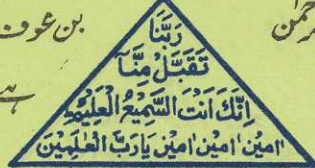 رحمن
بن عوف
رَبَّنَا
تَقَبَّلْ مِنَّآ
اِنَّكَ اَنْتَ السَّمِيْعُ الْعَلِيْمُ
امین امین امین یا رَبَّ الْعٰلَمِیْنَ